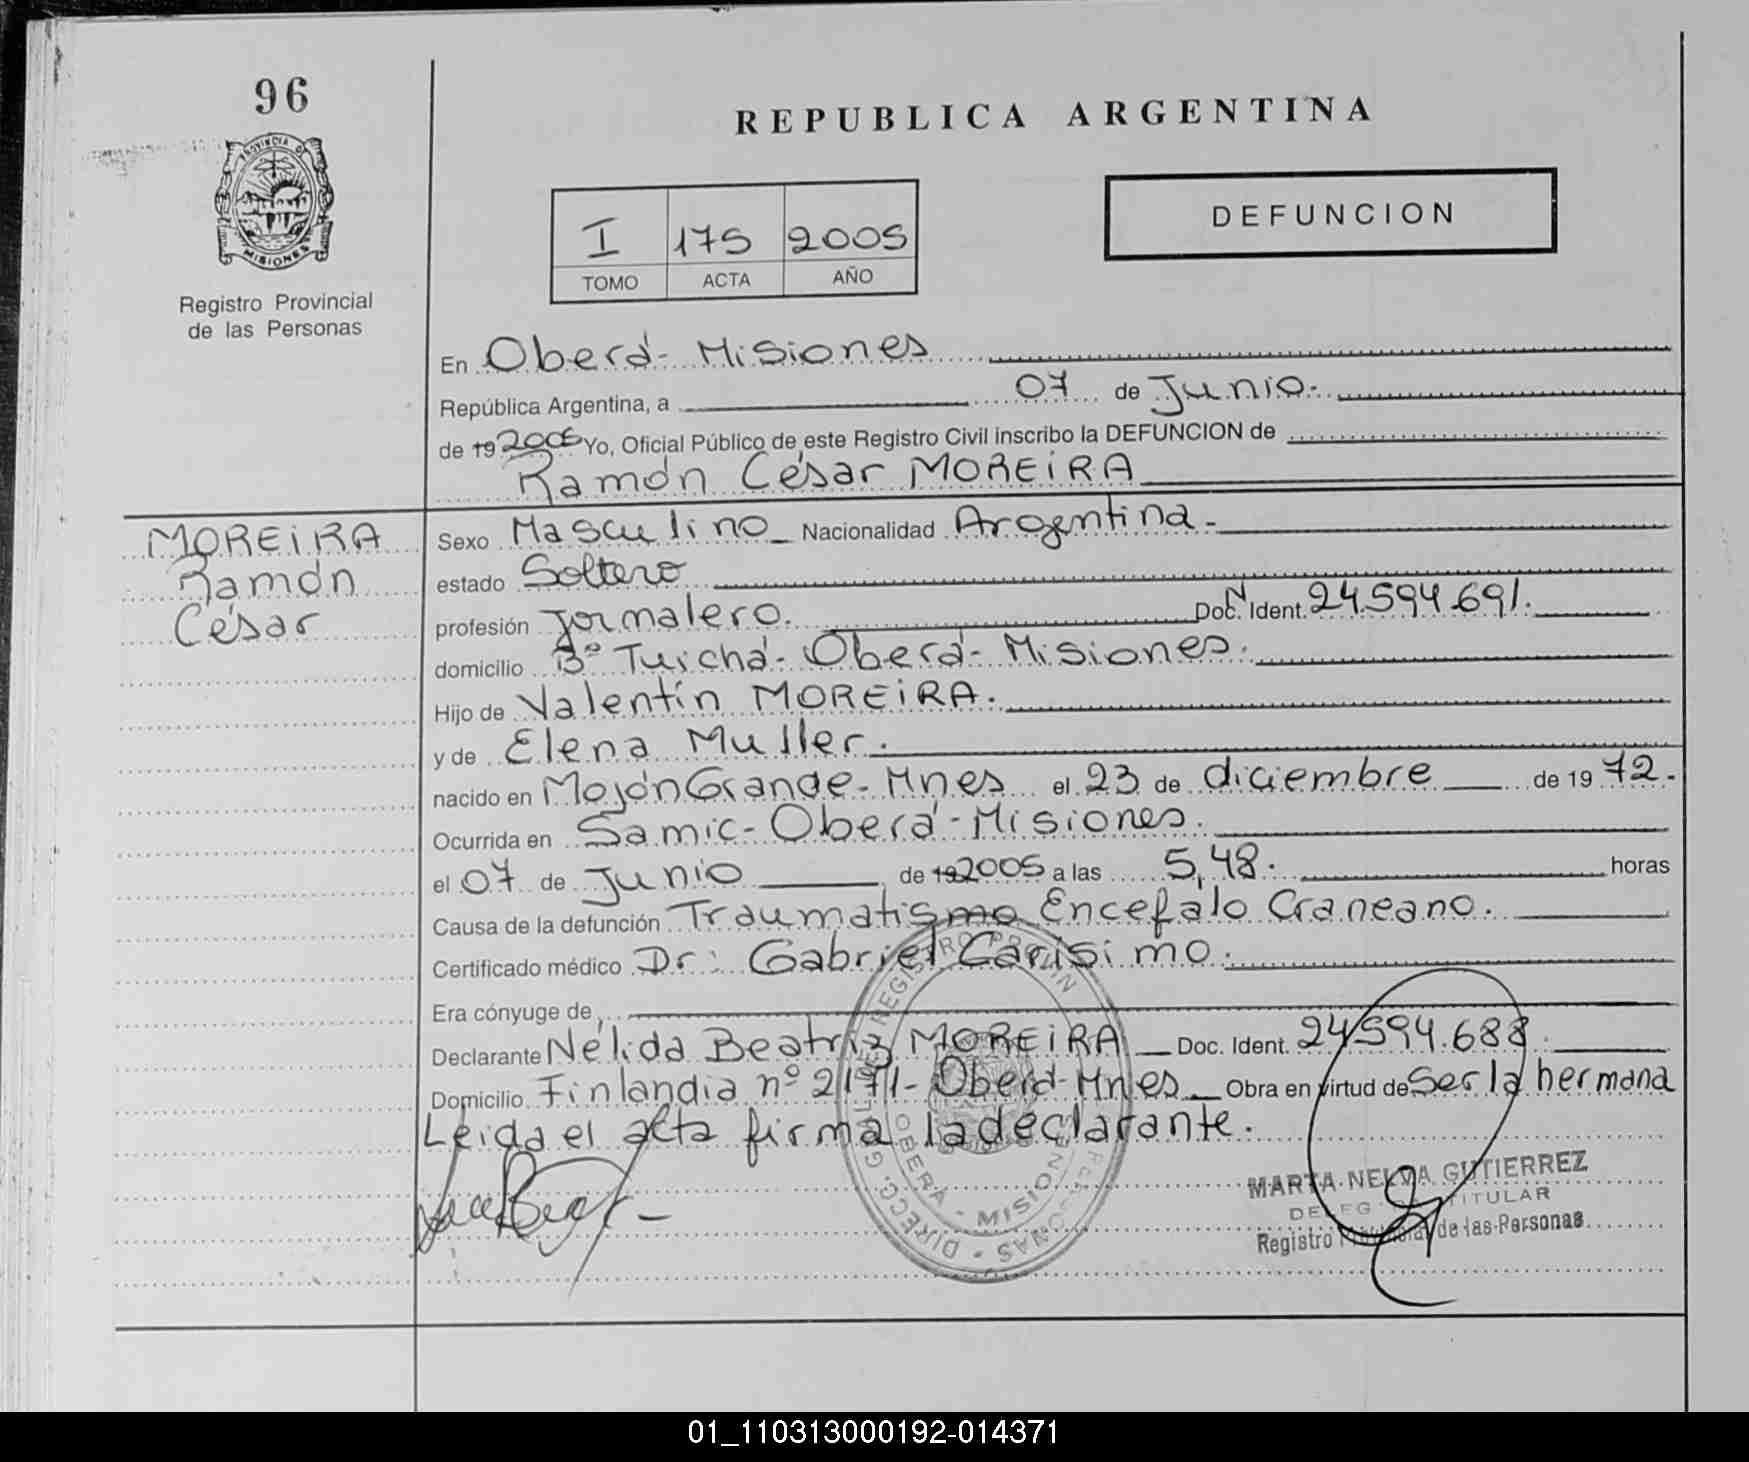 96
REPUBLICA ARGENTINA
PROVINCIA D
MISIONES
Registro Provincial
de las Personas
I 175 2005
TOMO ACTA AÑO
DEFUNCION
En Oberá- Misiones
República Argentina, a 07 de Junio.
de 19 2005 Yo, Oficial Público de este Registro Civil inscribo la DEFUNCION de
Ramón César MOREiRA
MOREiRA
Ramón
César
Sexo Masculino Nacionalidad Argentina.
estado Soltero
profesión Jornalero. Doc. N Ident. 24.594.691.
domicilio Bº Tuichá- Oberá- Misiones.
Hijo de Valentín MOREiRA.
y de Elena Muller.
nacido en Mojón Grande- Mnes el 23 de diciembre de 19 72.
Ocurrida en Samic- Oberá- Misiones.
el 07 de Junio de 19 2005 a las 5,48. horas
Causa de la defunción Traumatismo Encefalo Craneano.
Certificado médico Dr: Gabriel Carísimo.
Era cónyuge de
Declarante Nélida Beatriz MOREiRA Doc. Ident. 24.594.688.
Domicilio Finlandia nº 2171- Oberá- Mnes Obra en virtud de Ser la hermana
Leida el acta firma la declarante.
OBERA - MISIONES
MARTA NELVA GUTIERREZ
TITULAR
Registro Provincial de las Personas
01_110313000192-014371